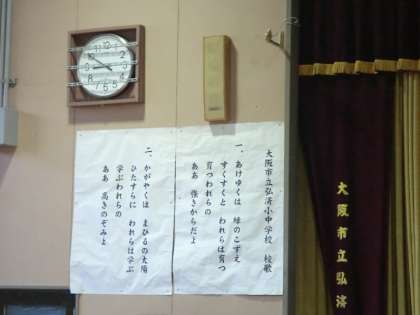 大阪市立弘済小中学校　校歌
一、あけゆくは　緑のこずえ
すくすくと　われらは育つ
育つわれらの
ああ　強きからだよ
二、かがやくは　まひるの太陽
ひたすらに　われらは学ぶ
学ぶわれらの
ああ　高きのぞみよ
大阪市立弘済